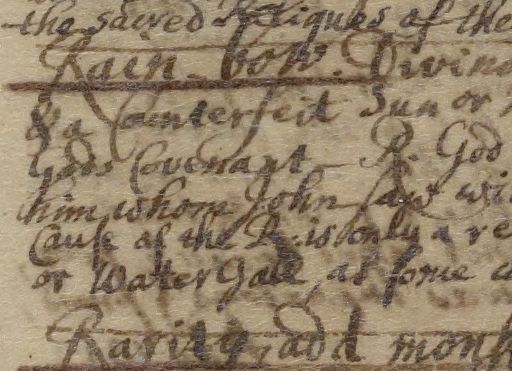 the sacred Reliques of the
Rain-bow. Divin
& a Counterfeit Sun or
Gods Covenant - R. God
him whom John saw wi
Cause of the R. is only a re
or Water Gall, as some
Rarity, add monst